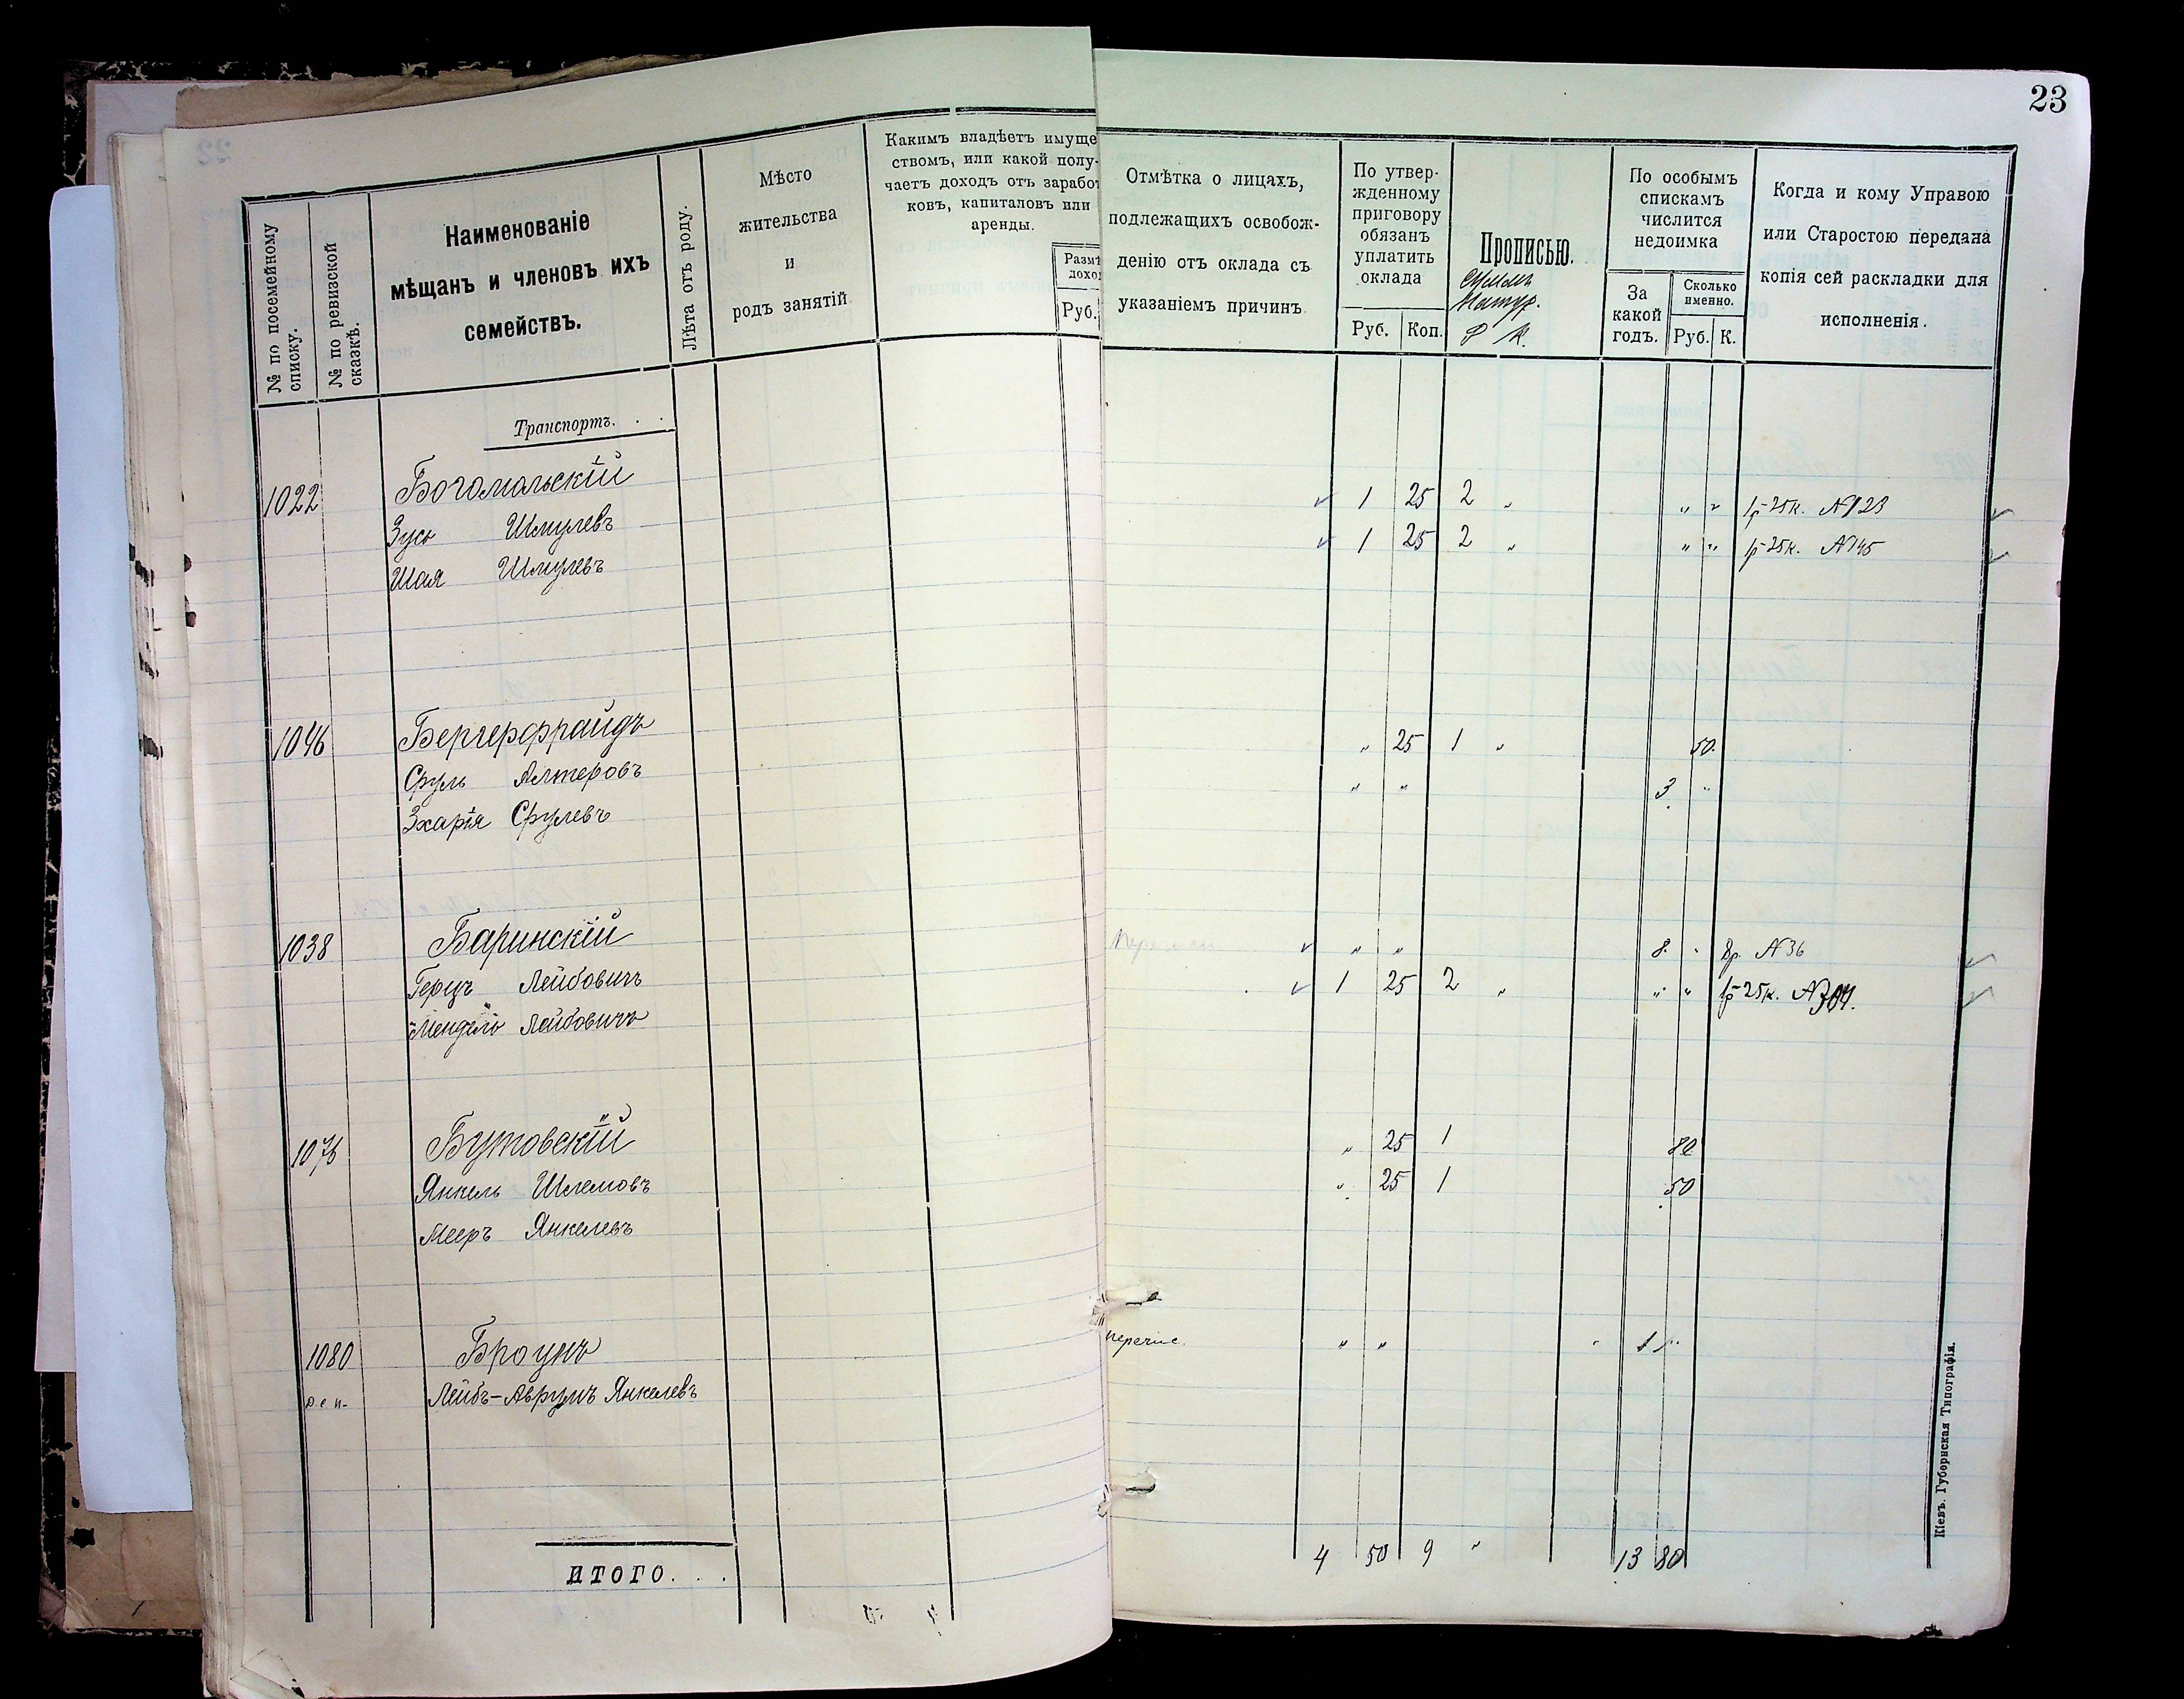 23
№ по посемейному списку.
№ по ревизской сказкѣ.
Наименованіе
мѣщанъ и членовъ ихъ
семействъ.
Лѣта отъ роду.
Мѣсто
жительства
и
родъ занятій.
Какимъ владѣетъ имуще
ствомъ, или какой полу-
чаетъ доходъ отъ зарабо
ковъ, капиталовъ или
аренды.
Размѣ
дохо
Руб.
Отмѣтка о лицахъ,
подлежащихъ освобож-
денію отъ оклада съ
указаніемъ причинъ.
По утвер-
жденному
приговору
обязанъ
уплатить
оклада
Руб. Коп.
Прописью.
Р К.
По особымъ
спискамъ
числится
недоимка
За
какой
годъ.
Сколько
именно.
Руб. К.
Когда и кому Управою
или Старостою передана
копія сей раскладки для
исполненія.
Транспортъ. . .
1022 Богомольскій
Зусь Шмулевъ 1 25 2 „ „ „ 1р 25к. №123
Шая Шмулевъ 1 25 2 „ „ „ 1р 25к. №145
1046 Бергерфрайдъ
Сруль Алтеровъ „ 25 1 „ 50.
Зхарія Срулевъ „ „ 3 „
1038 Баринскій
Герцъ Лейбовичъ „ „ 8. „ 8р. №36
Мендель Лейбовичъ 1 25 2 „ „ „ 1р 25к. №304.
1076 Бутовскій
Янкель Шлемовъ „ 25 1 80
Мееръ Янкелевъ „ 25 1 50
1080 Броунъ
Лейбъ-Аврумъ Янкелевъ перечис. „ „ 1 „
ИТОГО. . . 4 50 9 „ 13 80
Кіевъ. Губернская Типографія.